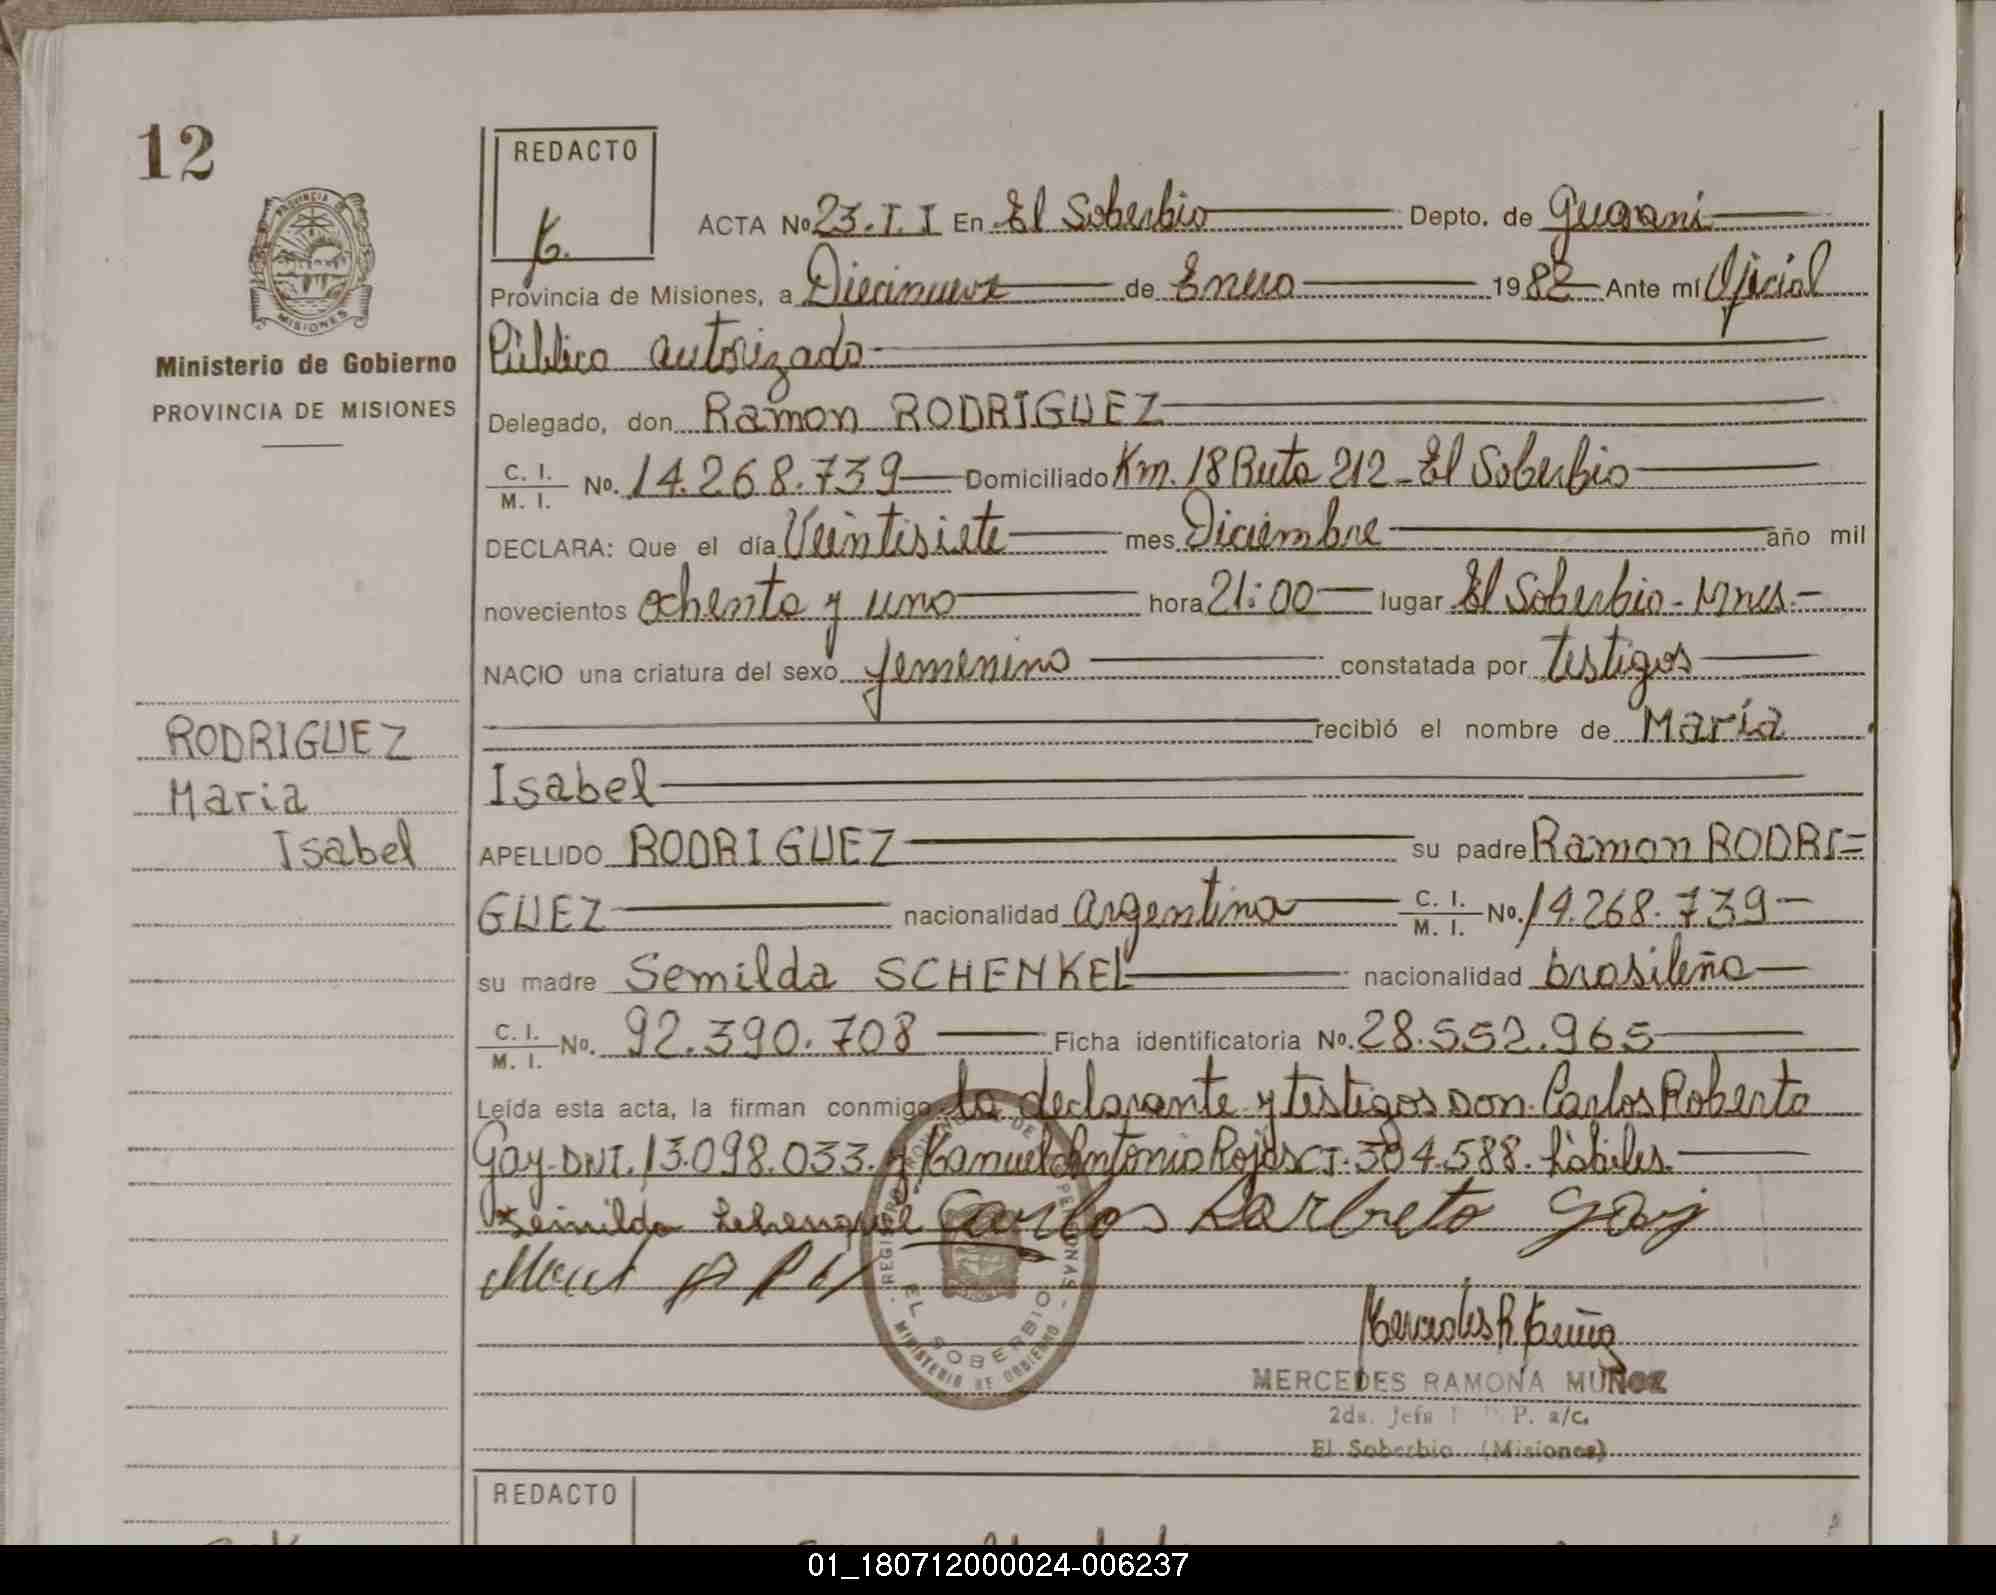 12
REDACTO
PROVINCIA DE
MISIONES
Ministerio de Gobierno
PROVINCIA DE MISIONES
ACTA No 23.I.I En El Soberbio Depto. de Guaraní
Provincia de Misiones, a Diecinueve de Enero 1982 Ante mí Oficial
Público autorizado
Delegado, don Ramon RODRIGUEZ
C. I. M. I. No. 14.268.739 Domiciliado Km. 18 Ruta 212 - El Soberbio
DECLARA: Que el día Veintisiete mes Diciembre año mil
novecientos ochenta y uno hora 21:00 lugar El Soberbio - Mnes.-
NACIO una criatura del sexo femenino constatada por testigos
recibió el nombre de María
Isabel
RODRIGUEZ
Maria
Isabel
APELLIDO RODRIGUEZ su padre Ramon RODRI=
GUEZ nacionalidad argentina C. I. M. I. No. 14.268.739-
su madre Semilda SCHENKEL nacionalidad brasileña
C. I. M. I. No. 92.390.708 Ficha identificatoria No. 28.552.965
Leída esta acta, la firman conmigo la declarante y testigos don Carlos Roberto
Gay-DNI. 13.098.033. y Manuel Antonio Rojas CI. 304.588. hábiles.
Semilda Carlos Gay
Mercedes R. Muñoz
REGISTRO PROVINCIAL DE PERSONAS
EL SOBERBIO
MINISTERIO DE GOBIERNO
MERCEDES RAMONA MUÑOZ
2da. Jefa P. a/c.
El Soberbio (Misiones)
REDACTO
01_180712000024-006237